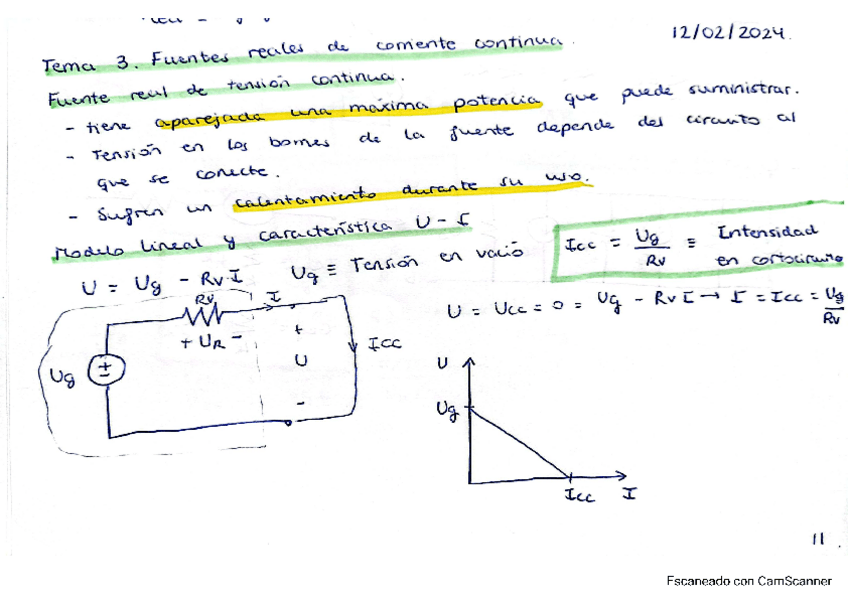 12/02/2024.
Tema 3. Fuentes reales de corriente continua.
Fuente real de tensión continua.
- tiene aparejada una máxima potencia que puede suministrar.
- Tensión en los bornes de la fuente depende del circuito al
que se conecte.
- Sufren un calentamiento durante su uso.
Modelo lineal y característica U - I
Icc = Ug/Rv ≡ Intensidad
en cortocircuito
U = Ug - Rv·I Ug ≡ Tensión en vacío
U = Ucc = 0 = Ug - Rv I → I = Icc = Ug/Rv
Rv I
+ UR -
+
U
-
Icc
Ug
±
U
Ug
Icc I
11.
Escaneado con CamScanner